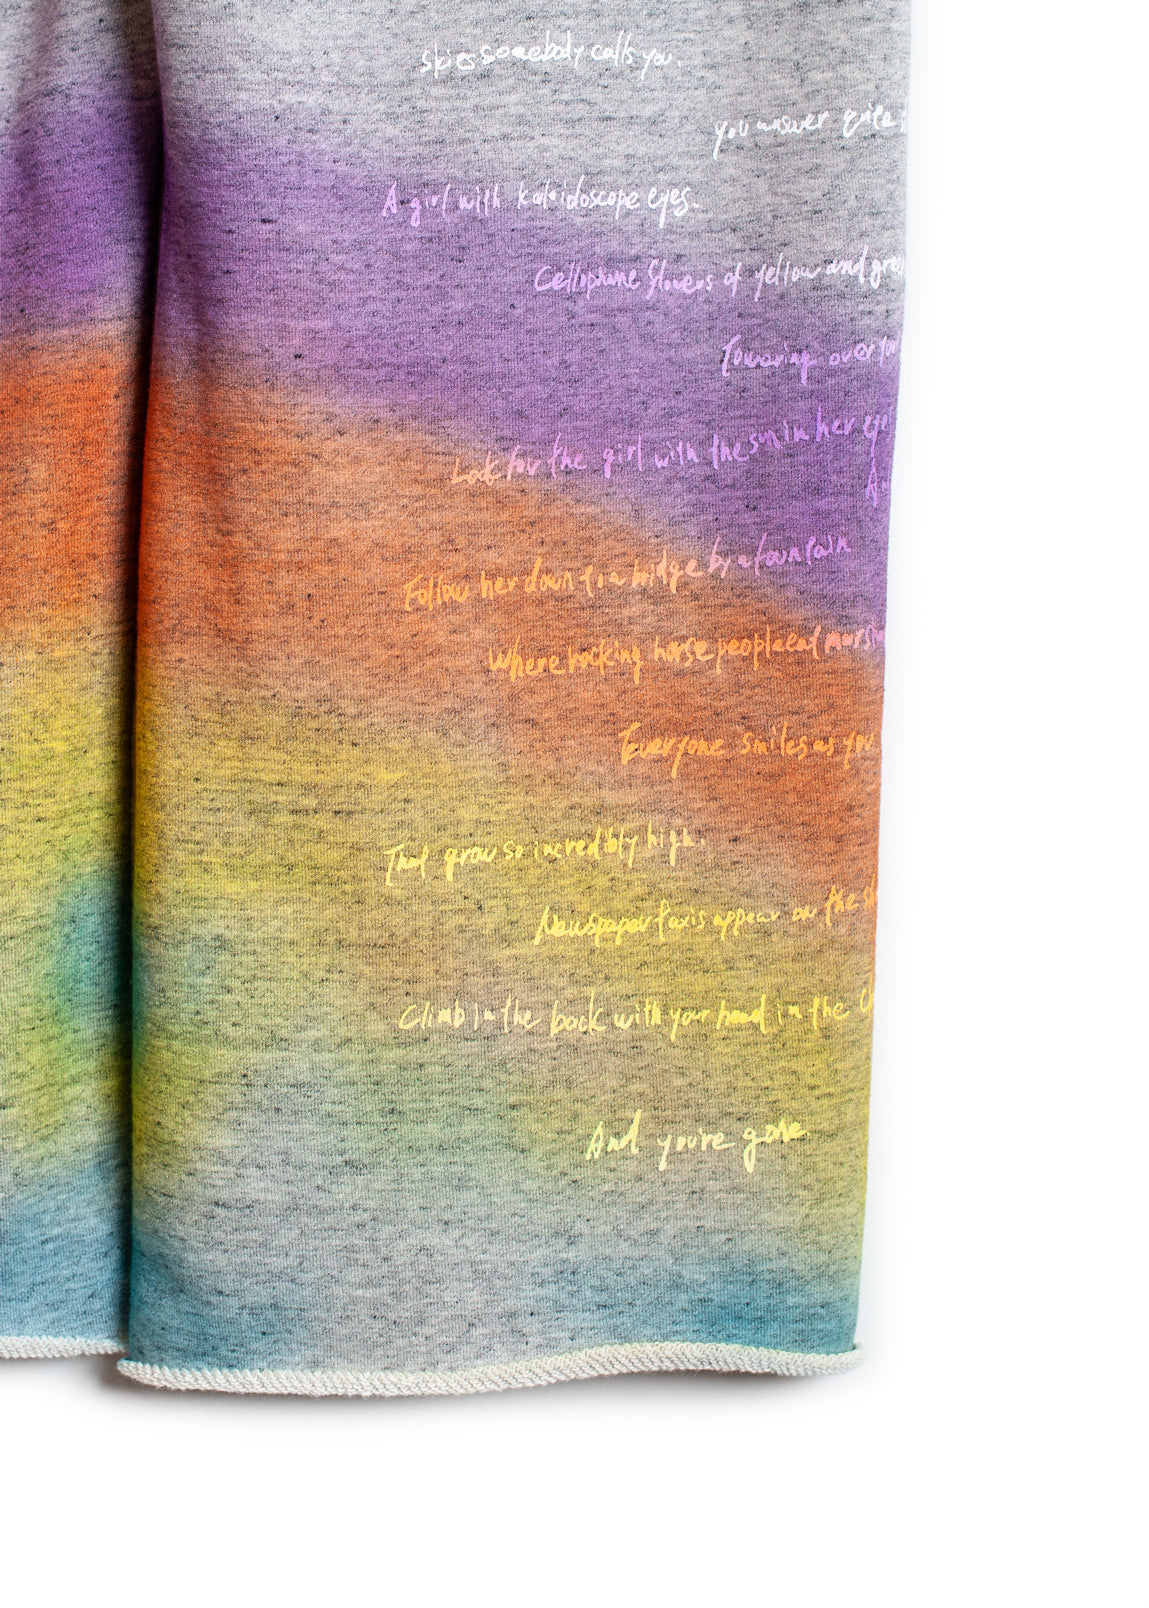 skies somebody calls you.
you answer quite
A girl with kaleidoscope eyes.
Cellophane flowers of yellow and gree
Towering over you
Look for the girl with the sun in her eye
An
Follow her down to a bridge by a fountain
Where rocking horse people eat marsh
Everyone smiles as you
That grow so incredibly high.
Newspaper taxis appear on the sh
Climb in the back with your head in the Cl
And you're gone